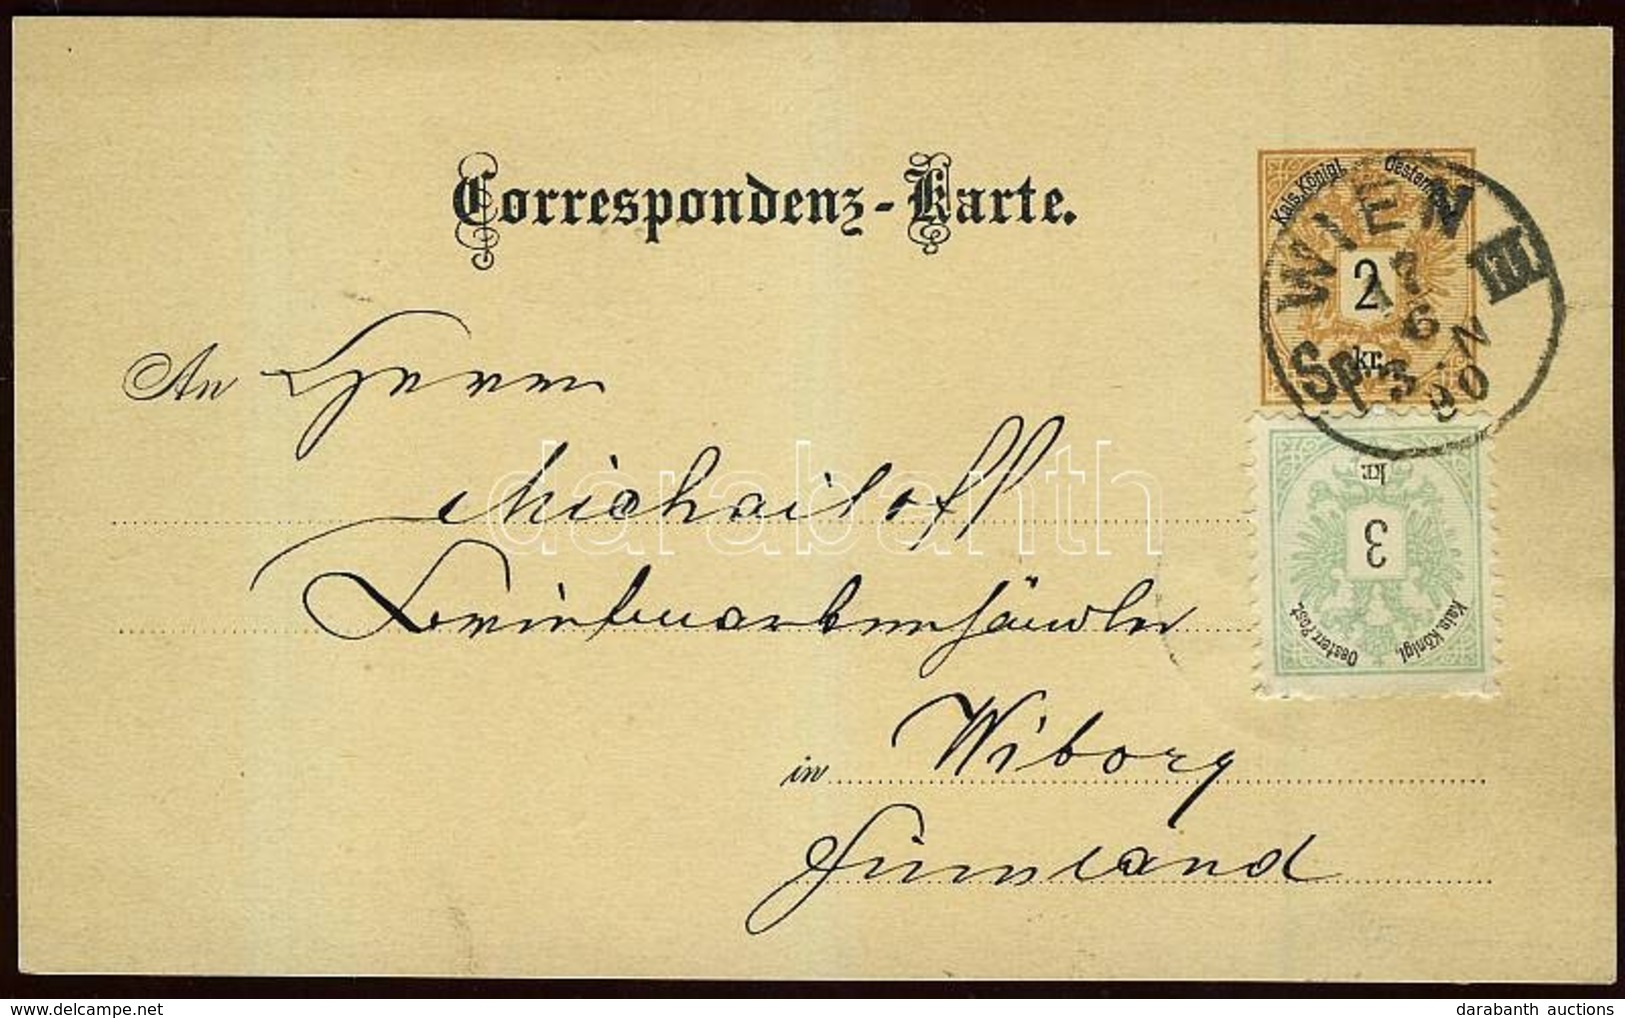 Correspondenz-Karte.
Kais. Königl. Oesterr.
2
kr.
WIEN III
17
6
3-N
90
An Herrn
Michailoff
Briefmarkenhändler
in Wiborg
Finnland
kr.
3
Kais. Königl.
Oesterr. Post.
darabanth
darabanth auctions